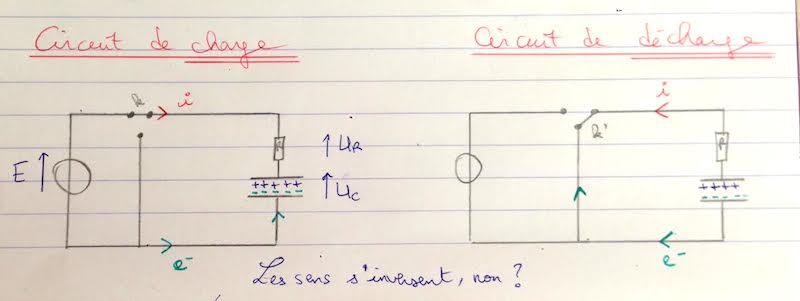 Circuit de charge
Circuit de décharge
k
i
i
R
UR
k'
R
E
+++++
UC
++++
e-
e-
Les sens s'inversent, non ?